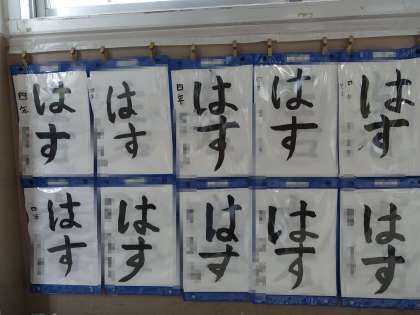 はす
四年
はす
はす
四年
はす
はす
はす
はす
はす
はす
はす